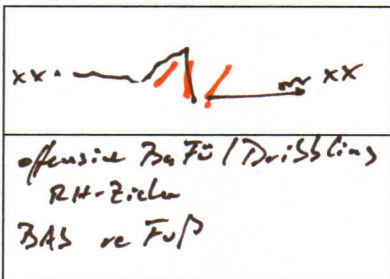 xx xx
offensive BaFü / Dribbling
RH-Ziehen
BAS re Fuß